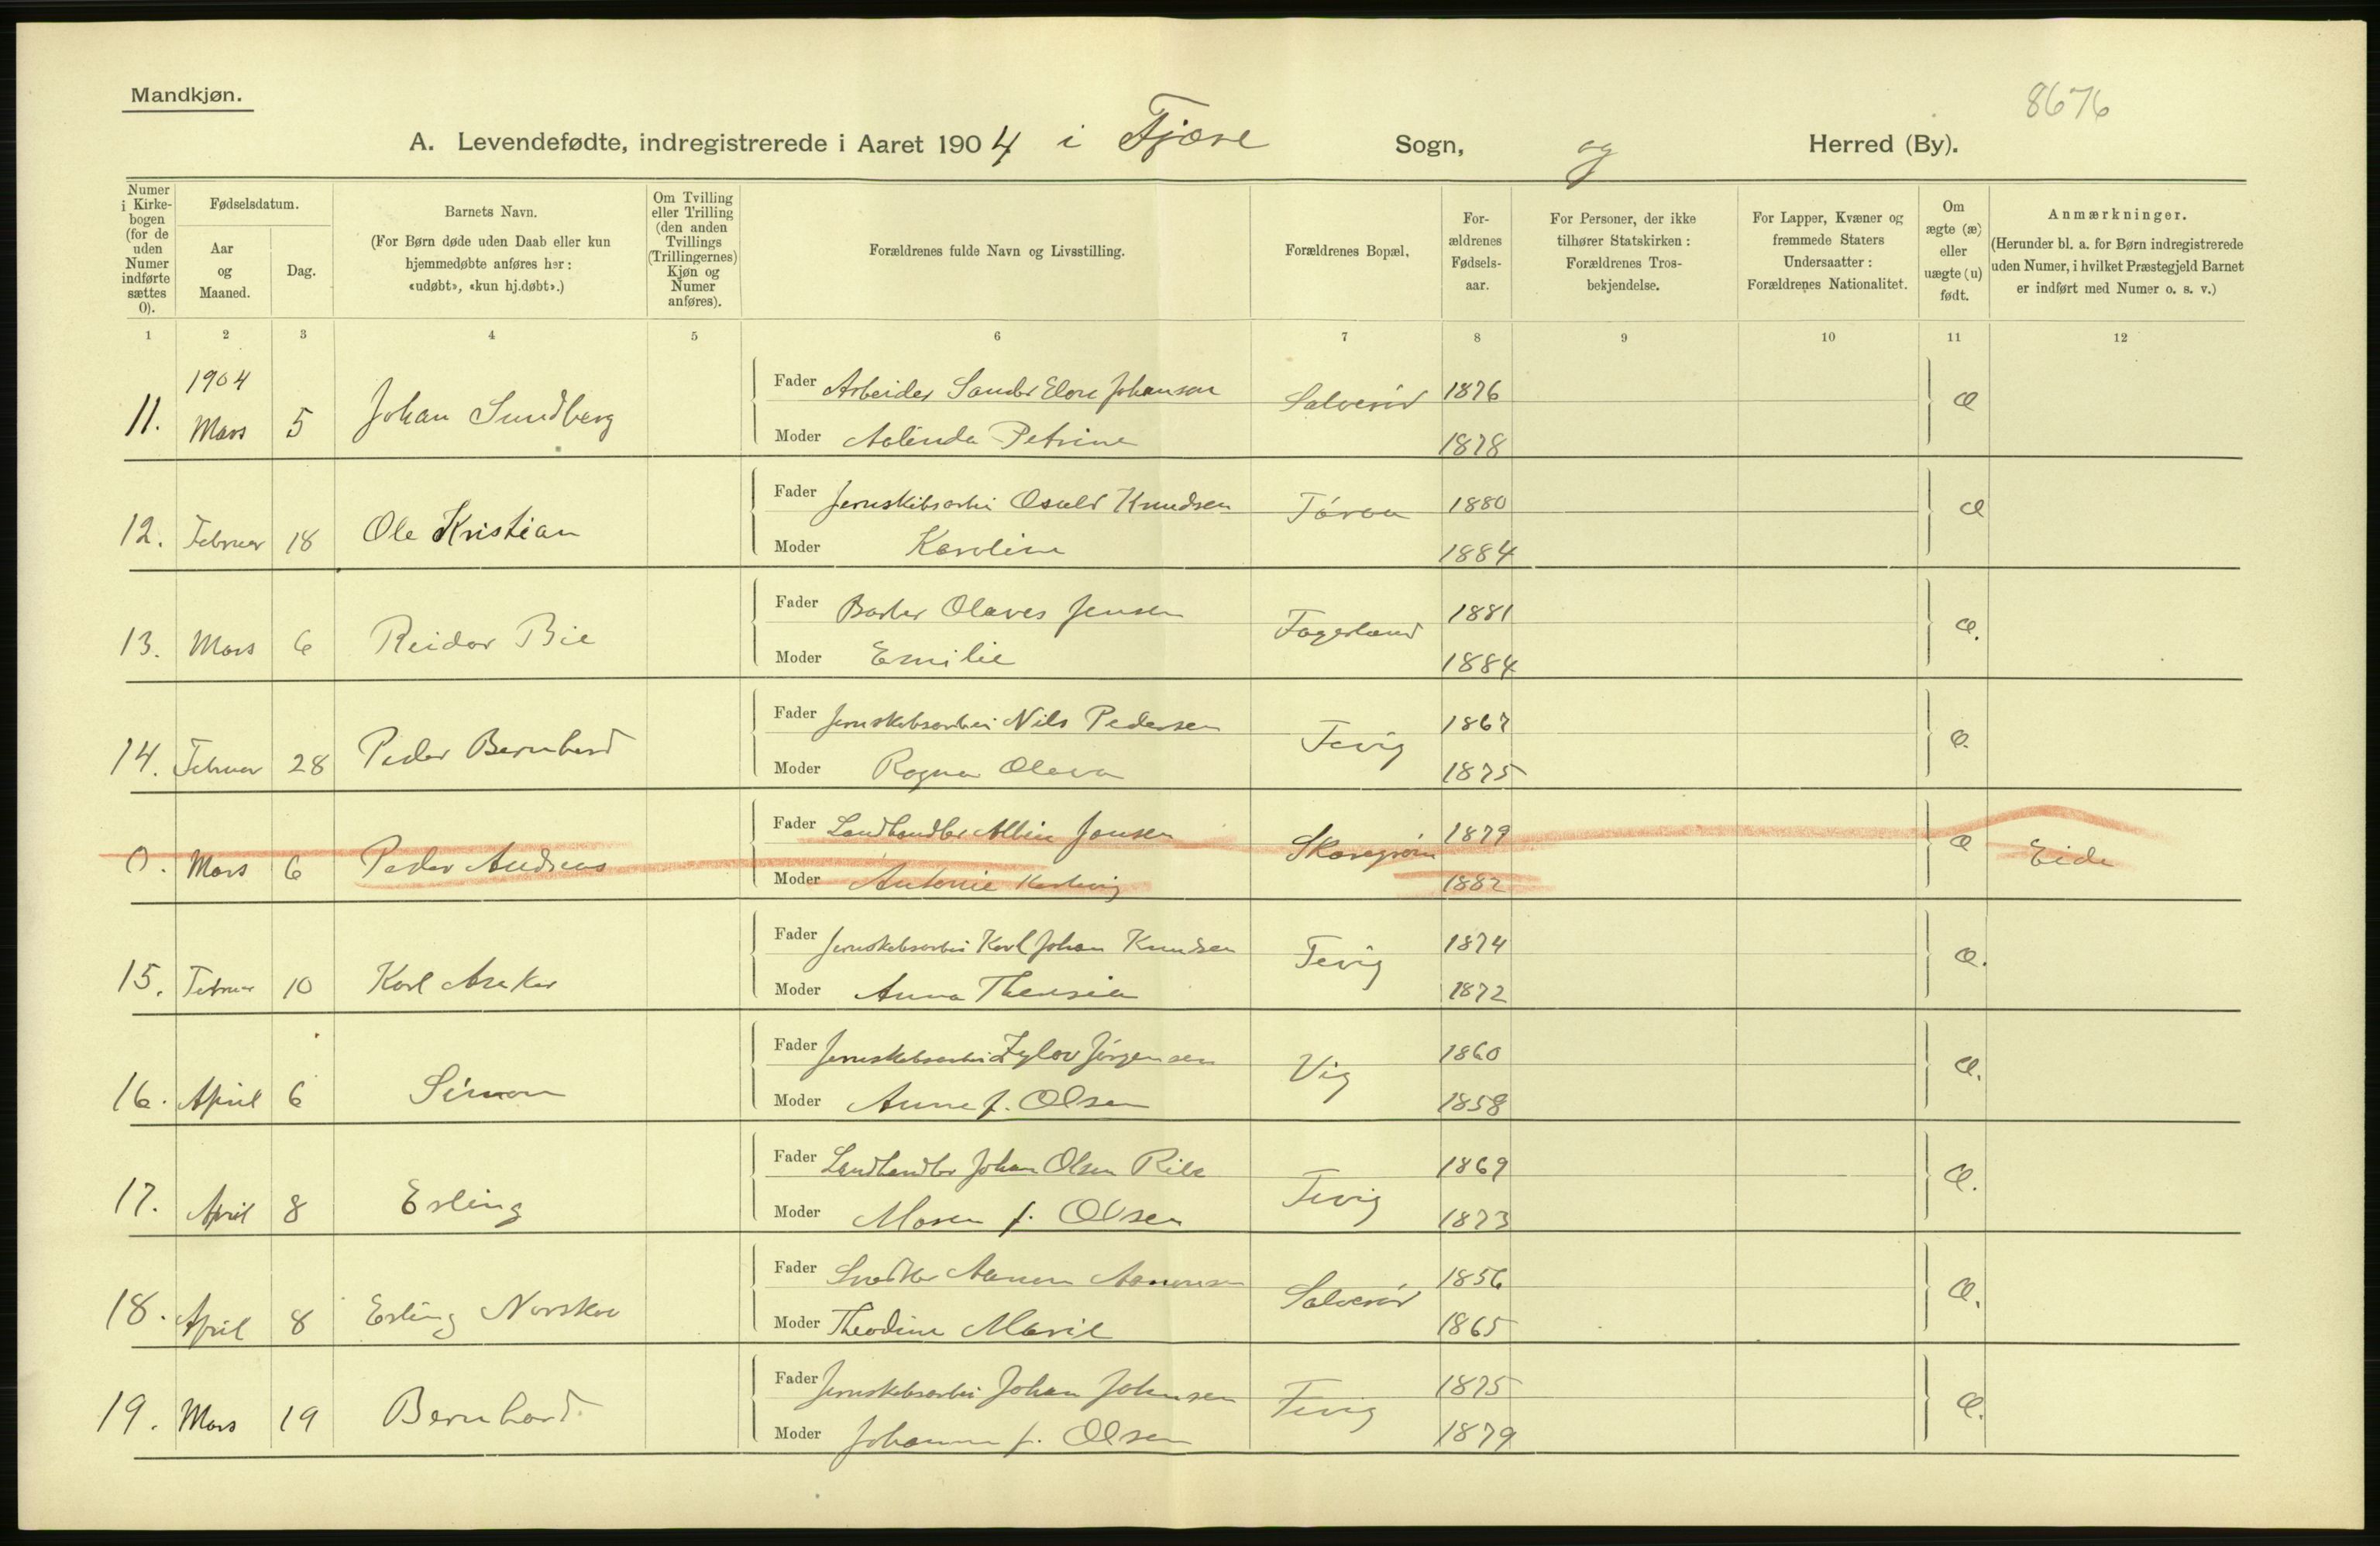 Mandkjøn.
8676
A. Levendefødte, indregistrerede i Aaret 1904 i Fjære Sogn, og Herred (By).
Numer i Kirke-bogen (for de uden Numer indførte sættes 0).
Fødselsdatum.
Aar og Maaned.
Dag.
Barnets Navn.
(For Børn døde uden Daab eller kun hjemmedøbte anføres her: «udøbt», «kun hj.døbt».)
Om Tvilling eller Trilling (den anden Tvillings (Trillingernes) Kjøn og Numer anføres).
Forældrenes fulde Navn og Livsstilling.
Forældrenes Bopæl,
For-ældrenes Fødsels-aar.
For Personer, der ikke tilhører Statskirken: Forældrenes Tros-bekjendelse.
For Lapper, Kvæner og fremmede Staters Undersaatter: Forældrenes Nationalitet.
Om ægte (æ) eller uægte (u) født.
Anmærkninger.
(Herunder bl. a. for Børn indregistrerede uden Numer, i hvilket Præstegjeld Barnet er indført med Numer o. s. v.)
1 2 3 4 5 6 7 8 9 10 11 12
1904
11. Mars 5 Johan Sundberg
Fader Arbeider Johansen 1876 æ
Moder Petrine 1878
12. Februar 18 Ole Kristian
Fader Jernskibsarbei Osuld Knudsen 1880 æ
Moder Karoline 1884
13. Mars 6 Reidar Bie
Fader Olaves Jensen Fagerland 1881 æ.
Moder Emilie 1884
14. Februar 28 Peder Bernhard
Fader Jernskibsarbei Nils Pedersen Fevig 1867 æ.
Moder Ragna Oleva 1875
0. Mars 6 Peder Andreas
Fader Landhandler Albin Jensen 1879 æ Eide
Moder Antonie 1882
15. Februar 10 Karl
Fader Jernskibsarbei Karl Johan Knudsen Fevig 1874 æ.
Moder Anna Theresia 1872
16. April 6 Simon
Fader Jernskibsarbei Jørgensen Vig 1860 æ.
Moder Anne f. Olsen 1858
17. April 8 Erling
Fader Landhandler Johan Olsen Fevig 1869 æ.
Moder Maren f. Olsen 1873
18. April 8 Erling
Fader Aanon Aanonsen 1856 æ.
Moder Theodine Marie 1865
19. Mars 19 Bernhard.
Fader Jernskibsarbei Johan Johnsen Fevig 1875 æ.
Moder Johanne f. Olsen 1879